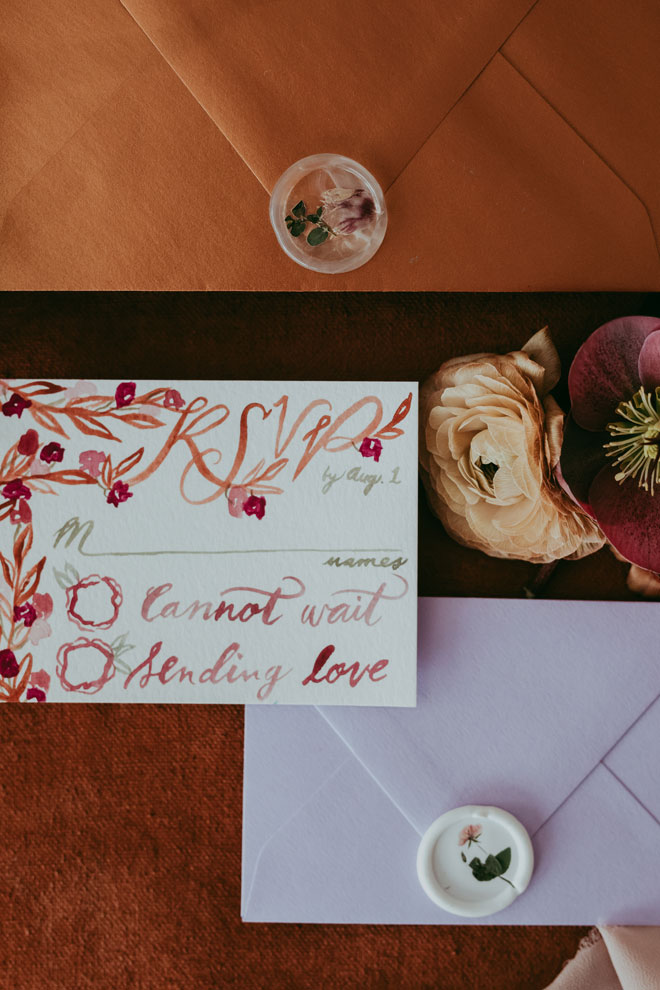 RSVP
by Aug. 1
M
names
Cannot wait
Sending love